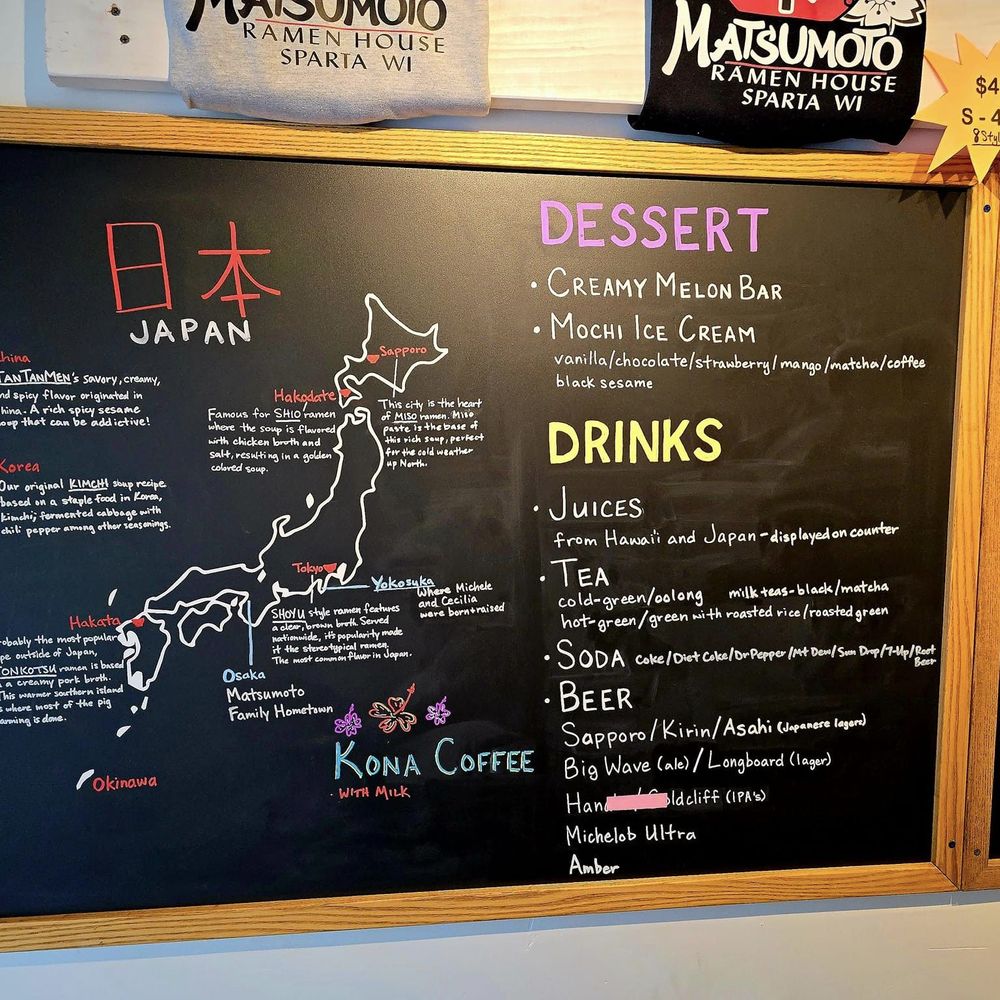 MATSUMOTO
RAMEN HOUSE
SPARTA WI
MATSUMOTO
RAMEN HOUSE
SPARTA WI
$4
S-4
8 Styl
日本
JAPAN
hina
TANTANMEN's savory, creamy,
nd spicy flavor originated in
hina. A rich spicy sesame
oup that can be addictive!
Korea
Our original KIMCHI soup recipe
based on a staple food in Korea,
kimchi; fermented cabbage with
chili pepper among other seasonings.
Sapporo
This city is the heart
of MISO ramen. Miso
paste is the base of
this rich soup, perfect
for the cold weather
up North.
Hakodate
Famous for SHIO ramen
where the soup is flavored
with chicken broth and
salt, resulting in a golden
colored soup.
Tokyo
SHOYU style ramen features
a clear, brown broth. Served
nationwide, it's popularity made
it the stereotypical ramen.
The most common flavor in Japan.
Yokosuka
Where Michele
and Cecilia
were born+raised
Hakata
robably the most popular
pe outside of Japan,
ONKOTSU ramen is based
n a creamy pork broth.
This warmer southern island
s where most of the pig
arming is done.
Osaka
Matsumoto
Family Hometown
Okinawa
KONA COFFEE
• WITH MILK
DESSERT
• CREAMY MELON BAR
• MOCHI ICE CREAM
vanilla/chocolate/strawberry/mango/matcha/coffee
black sesame
DRINKS
• JUICES
from Hawai'i and Japan - displayed on counter
• TEA
cold-green/oolong milk teas-black/matcha
hot-green/green with roasted rice/roasted green
• SODA Coke/Diet Coke/Dr Pepper/Mt Dew/Sun Drop/7-Up/Root
Beer
• BEER
Sapporo/Kirin/Asahi (Japanese lagers)
Big Wave (ale)/Longboard (lager)
Han ldcliff (IPA's)
Michelob Ultra
Amber